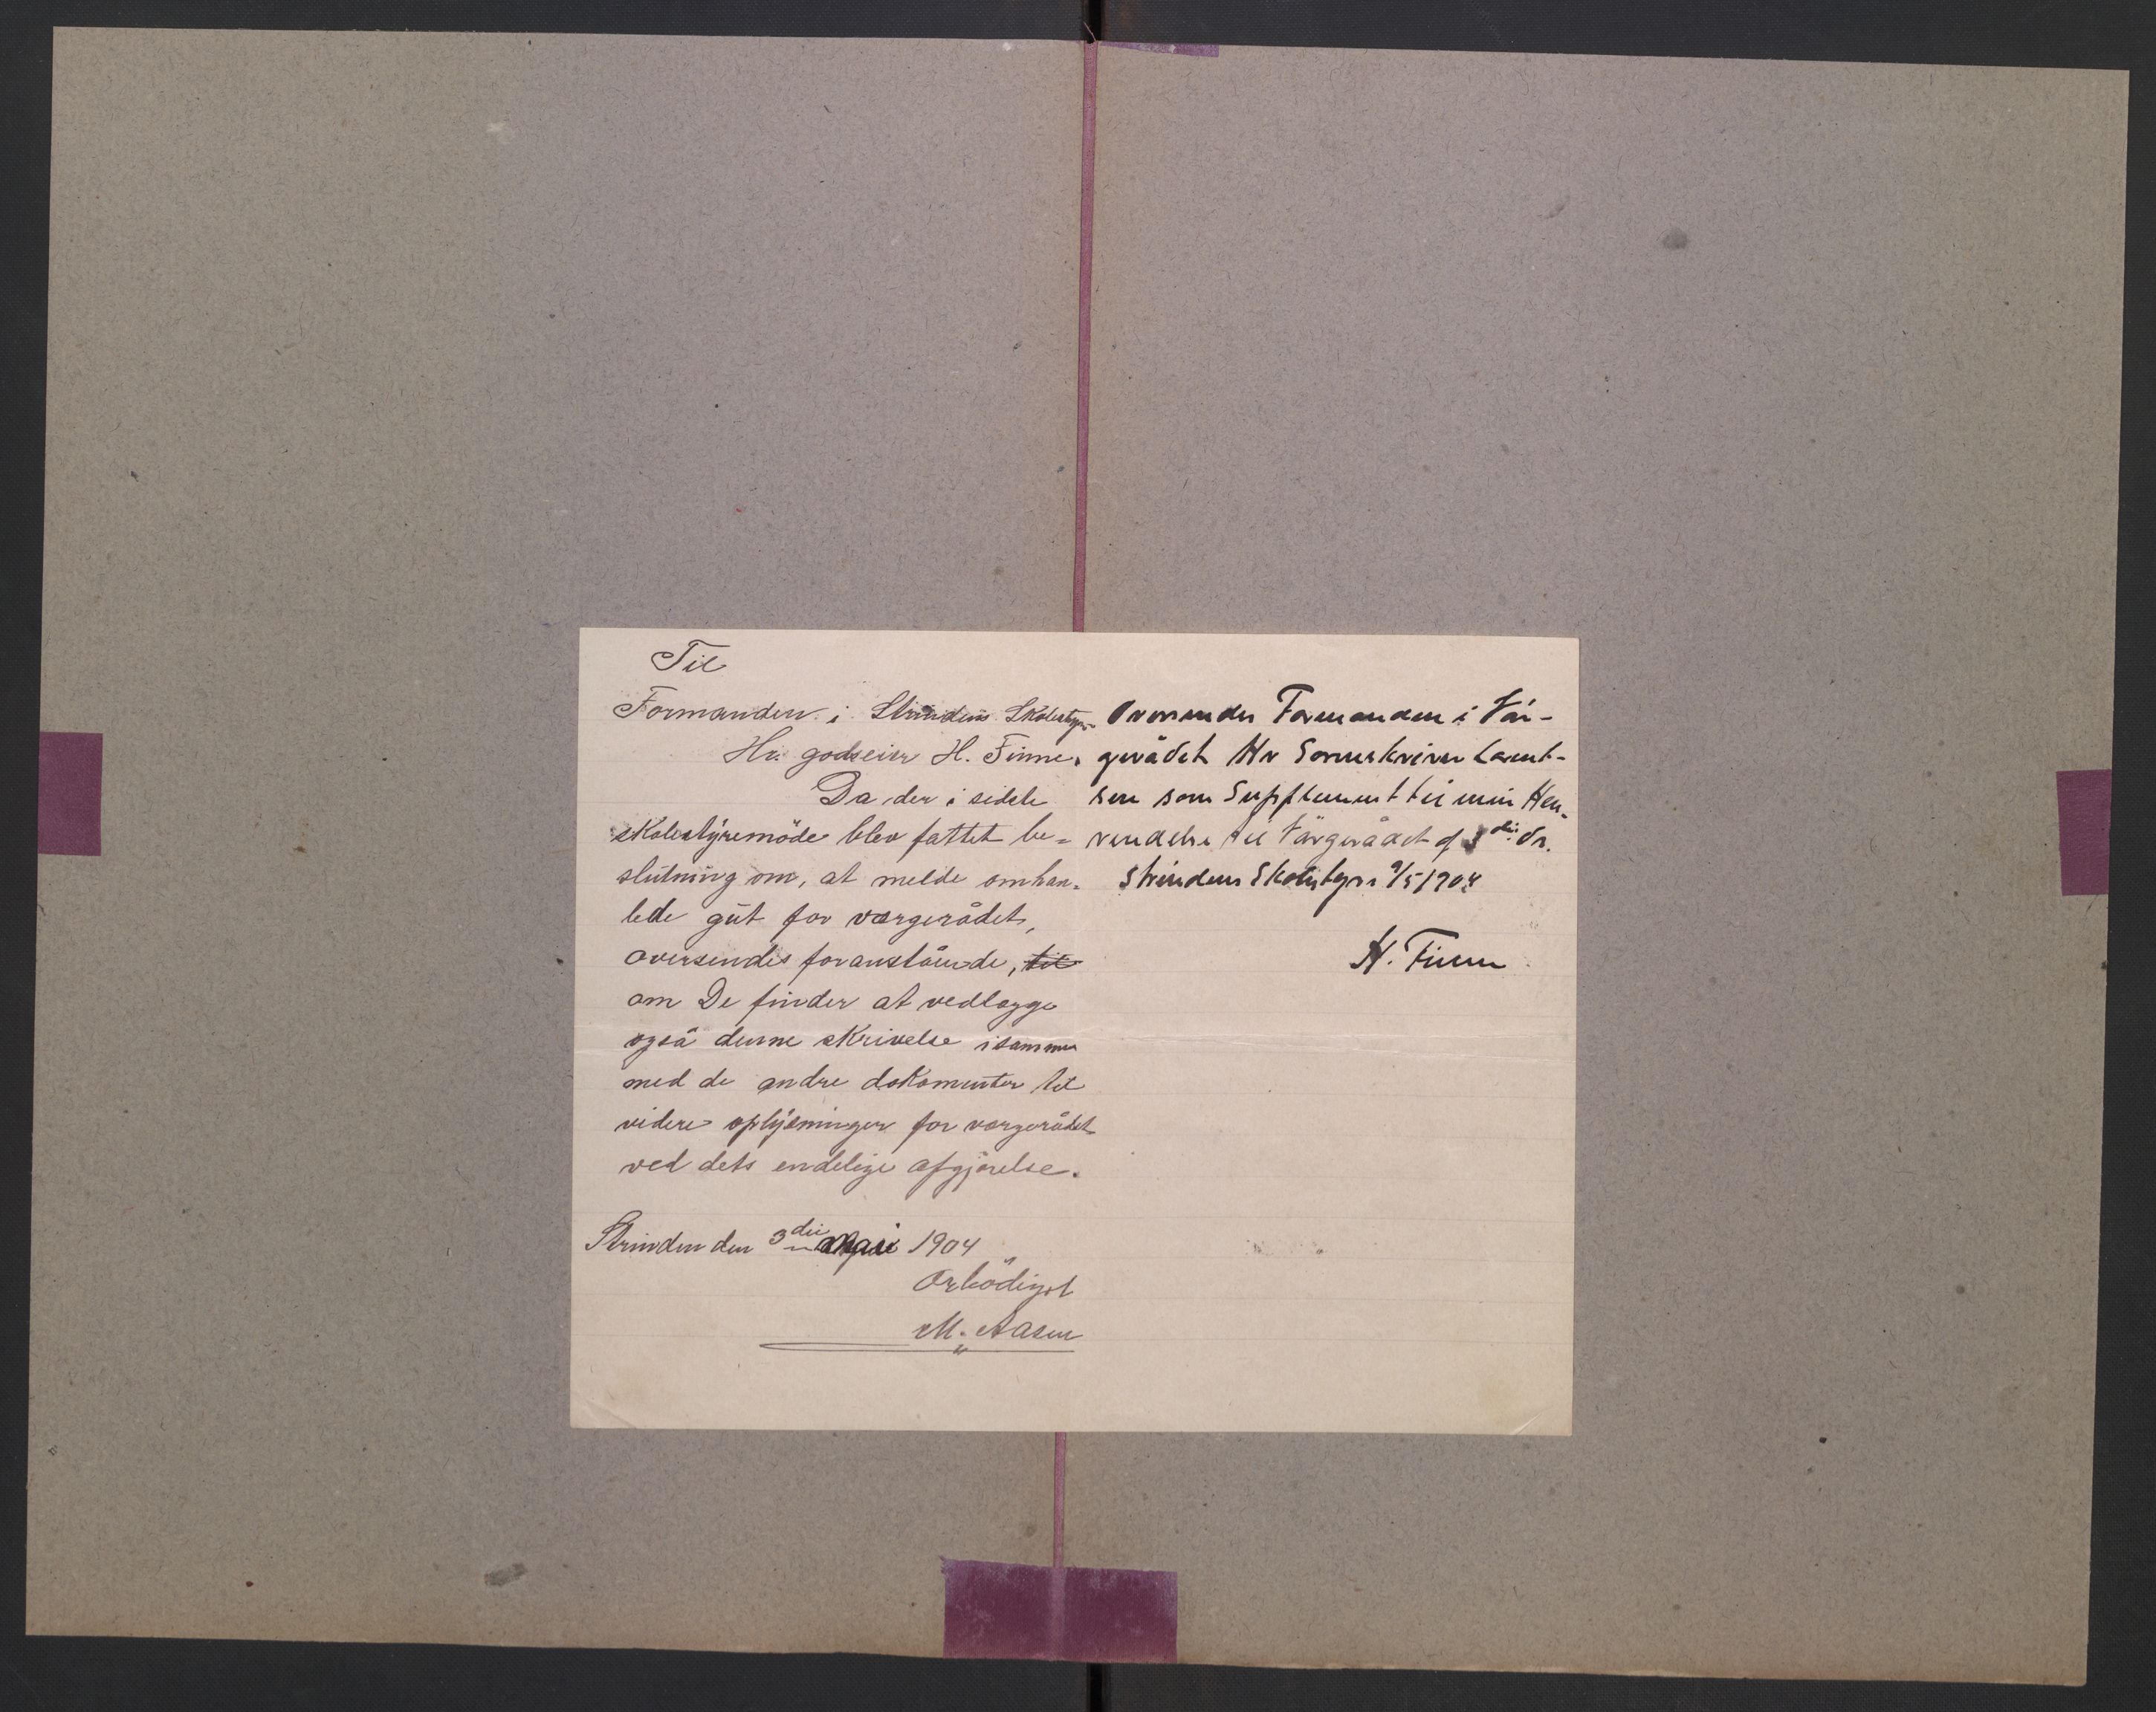 Til
Formanden i Strindens Skolestyre
Hr. godseier H. Finne.
Da der i sidste
skolestyremöde blev fattet be=
slutning om, at melde omhan-
lede gut for værgerådet,
oversendes foranstående, til
om De finder at vedlægge
også denne skrivelse isammen
med de andre dokomenter til
videre oplysninger for værgerådet
ved dets endelige afgjörelse.
Strinden den 3die mai 1904
Ærbödigst
M. Aasen
Oversendes Formanden i Vær-
gerådet Hr Sorenskriver Lorent-
sen som Supplement til min Hen-
vendelse til Værgerådet af 3die ds.
Strindens Skolestyre 9/5 1904
H. Finne